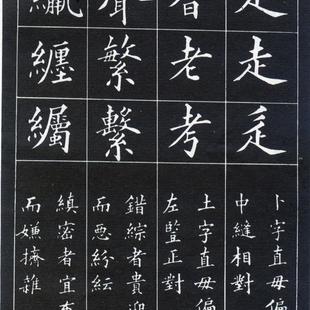 走
走
卜字直毋偏
中縫相對
老
考
土字直毋偏
左豎正對
繁
繫
錯綜者貴迎
而惡紛紜
纏
縝密者宜
而嫌擠雜